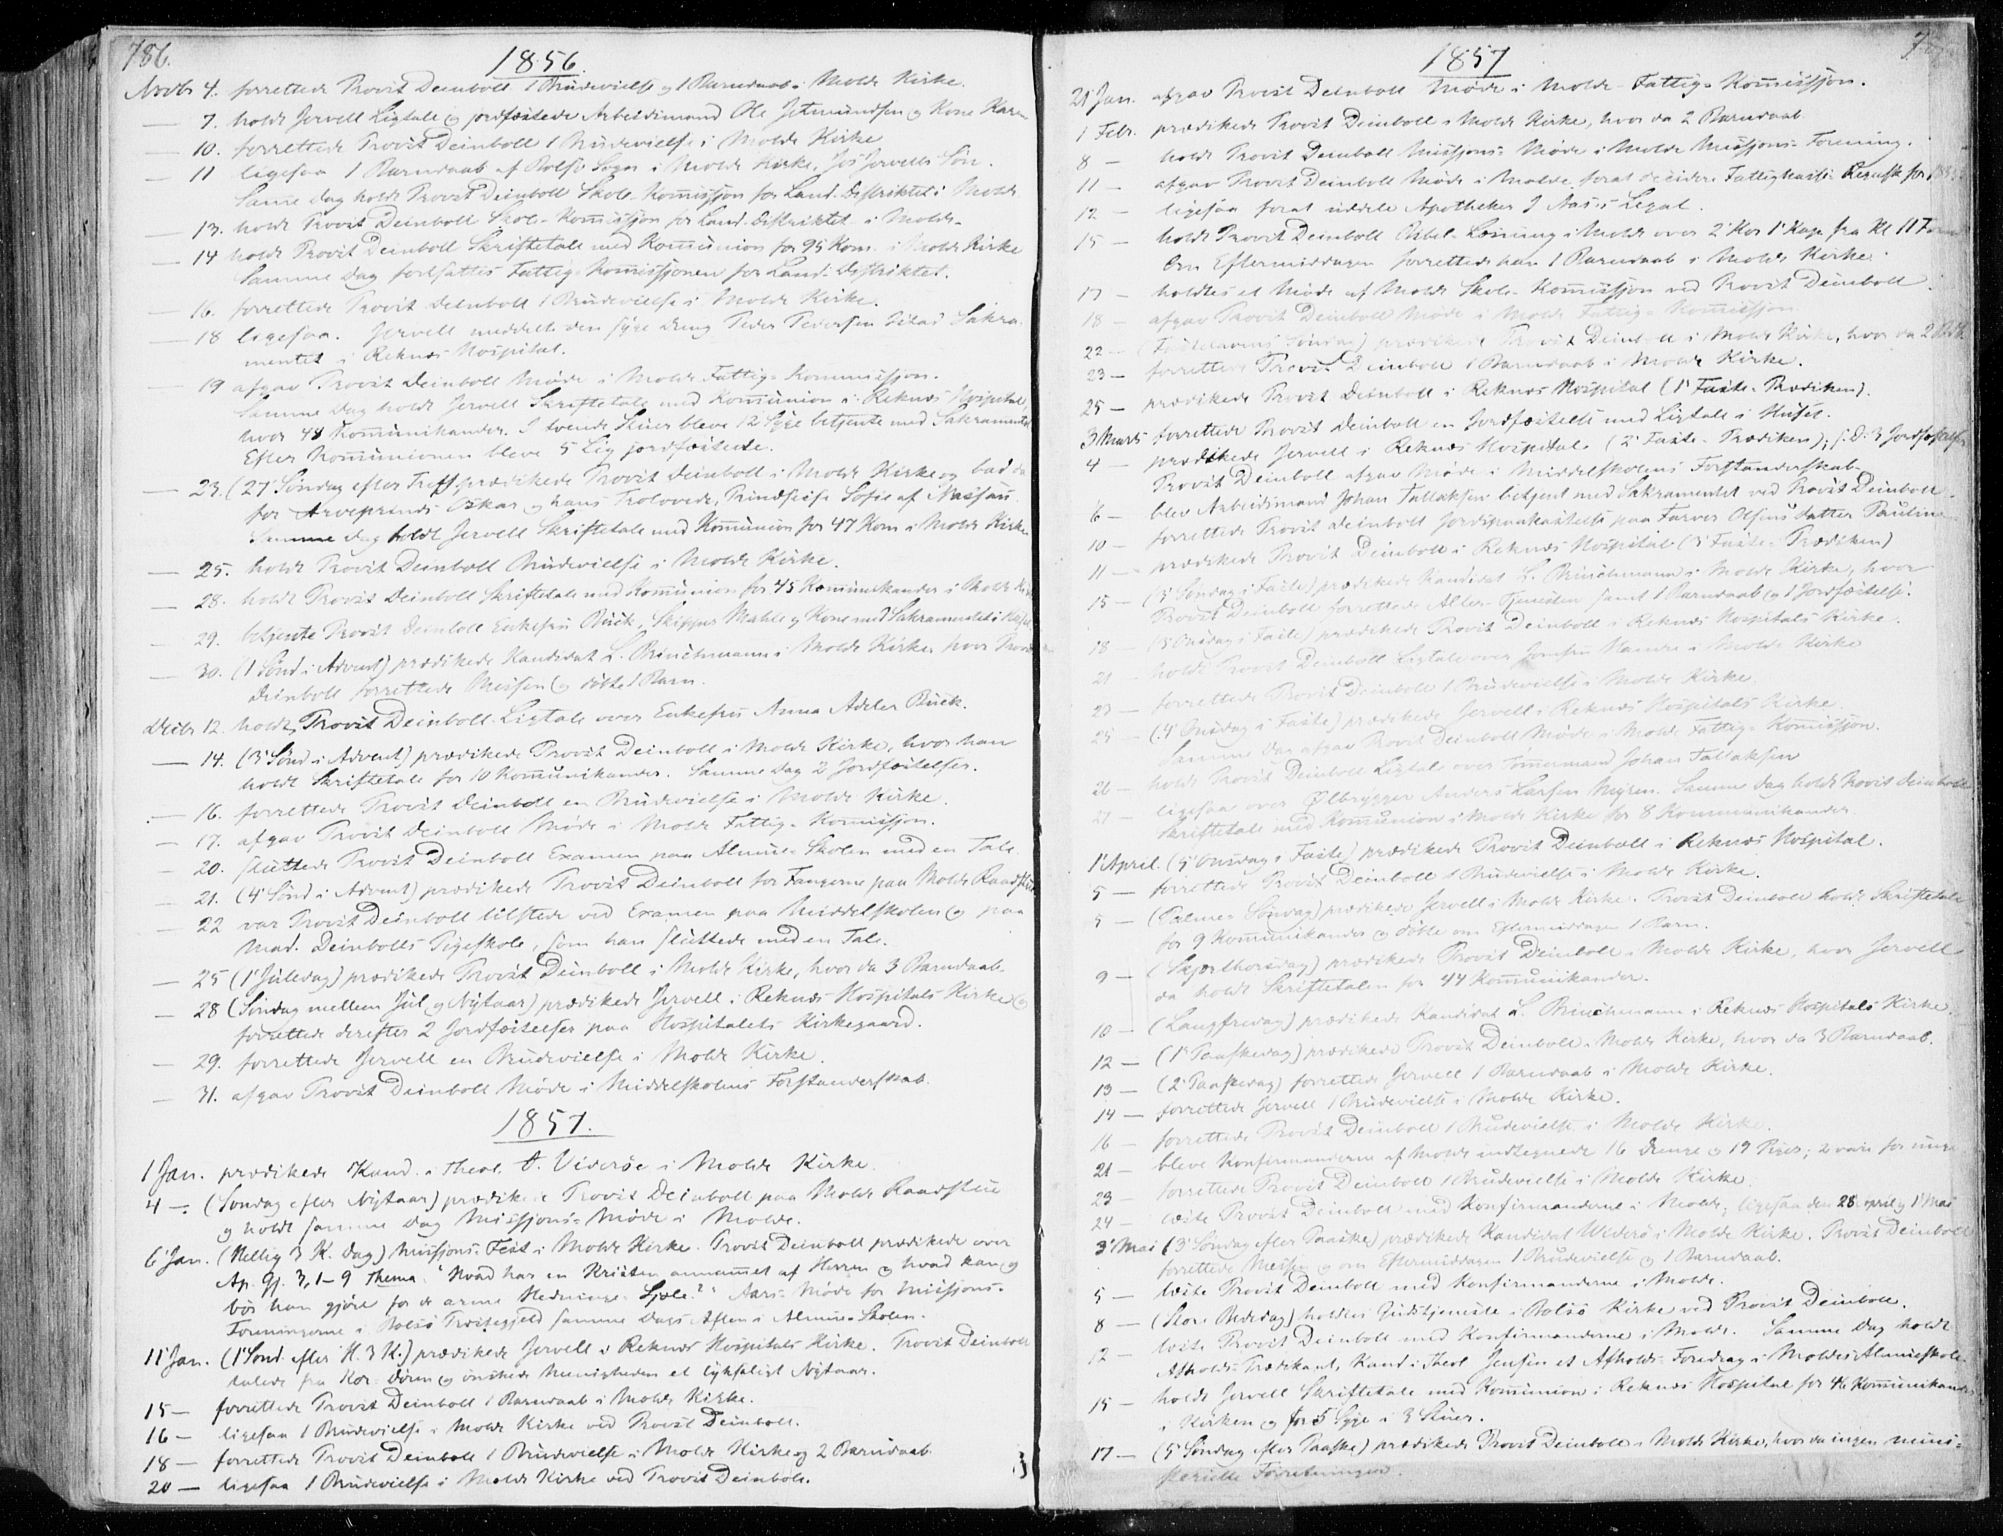 786.
1856.
Novb 4. forrettede Provst Deinboll 1 Brudevielse og 1 Barndaab i Molde Kirke.
— 7. holdt Jervell Ligtale og jordfæstede Arbeidsmand Ole Jetmundsen og Kone Karen
— 10. forrettede Provst Deinboll 1 Brudevielse i Molde Kirke
— 11 ligesaa 1 Barndaab af Bolsø Sogn i Molde Kirke, Jervells Søn.
Samme Dag holdt Provst Deinboll Skole-Kommissjon for Land-Distriktet i Molde
— 13. holdt Provst Deinboll Skole-Kommissjon for Land-Distriktet i Molde
— 14 holdt Provst Deinboll Skriftetale med Kommunion for 95 Kom. i Molde Kirke
Samme Dag fortsattes Fattig-Kommissjonen for Land-Distriktet.
— 16. forrettede Provst Deinboll 1 Brudevielse i Molde Kirke.
— 18 ligesaa. Jervell meddelte den syge Dreng Peder Pedersen Sakra-
mentet i Reknæs Hospital.
— 19 afgav Provst Deinboll Møde i Molde Fattig-Kommissjon.
Samme Dag holdt Jervell Skriftetale med Kommunion i Reknæs Hospital,
hvor 48 Kommunikander. I tvende Stuer bleve 12 Syge betjente med Sakramentet
Efter Kommunionen bleve 5 Lig jordfæstede.
— 23. (27 Søndag efter Treff) prædikede Provst Deinboll i Molde Kirke og bad da
for Arveprinds Oskar og hans Trolovede, Prindsesse Sofie af Nassau.
Samme Dag holdt Jervell Skriftetale med Kommunion for 47 Kom i Molde Kirke
— 25. holdt Provst Deinboll Brudevielse i Molde Kirke.
— 28. holdt Provst Deinboll Skriftetale med Kommunion for 45 Kommunikander i Molde Kirke
— 29. betjente Provst Deinboll Enkefru Buck, Skipper Mahle og Kone med Sakramentet i
— 30. (1 Sønd i Advent) prædikede Kandidat L. Brinchmann i Molde Kirke, hvor Provst
Deinboll forrettede Messen og døbte 1 Barn.
Decbr 12. holdt Provst Deinboll Ligtale over Enkefru Anna Adler Buck.
— 14. (3 Sønd i Advent) prædikede Provst Deinboll i Molde Kirke, hvor han
holdt Skriftetale for 10 Kommunikander. Samme Dag 2 Jordfæstelser.
— 16. forrettede Provst Deinboll en Brudevielse i Molde Kirke.
— 17. afgav Provst Deinboll Møde i Molde Fattig-Komissjon.
— 20. sluttede Provst Deinboll Examen paa Almue-Skolen med en Tale
— 21. (4 Sønd i Advent) prædikede Provst Deinboll for Fangerne paa Molde Raadstue
— 22 var Provst Deinboll tilstede ved Examen paa Middelskolen og paa
Mad. Deinbolls Pigeskole, som han sluttede med en Tale.
— 25 (1 Juledag) prædikede Provst Deinboll i Molde Kirke, hvor da 3 Barndaab.
— 28 (Søndag mellem Jul og Nytaar) prædikede Jervell i Reknæs Hospitals Kirke og
forrettede derefter 2 Jordfæstelser paa Hospitalets Kirkegaard.
— 29. forrettede Jervell en Brudevielse i Molde Kirke.
— 31. afgav Provst Deinboll Møde i Middelskolens Forstanderskab.
1857.
1 Jan. prædikede Kand. i Theol. A. Viderøe i Molde Kirke
4 — (Søndag efter Nytaar) prædikede Provst Deinboll paa Molde Raadstue
og holdt samme Dag Missjons-Møde i Molde.
6 Jan. (Hellig 3 K. Dag) Missjons-Fest i Molde Kirke. Provst Deinboll prædikede over
Ap. Gj. 3, 1–9 Thema: "Hvad har en Kristen annammet af Herren og hvad kan og
bør han gjøre for de arme Hedninge-Sjæle?" Aars-Møde for Missjons-
Foreningerne i Bolsø Præstegjeld samme Dags Aften i Almue-Skolen.
11 Jan. (1 Sønd. efter H. 3 K.) prædikede Jervell i Reknæs Hospitals Kirke. Provst Deinboll
talede fra Kor-Døren og ønskede Menigheden et lyksaligt Nytaar.
15 — forrettede Provst Deinboll 1 Barndaab i Molde Kirke.
16 — ligesaa 1 Brudevielse i Molde Kirke ved Provst Deinboll.
18 — forrettede Provst Deinboll 1 Brudevielse i Molde Kirke og 2 Barndaab
20 — ligesaa 1 Brudevielse i Molde Kirke ved Provst Deinboll.
1857
21 Jan. afgav Provst Deinboll Møde i Molde Fattig-Kommissjon.
1 Febr. prædikede Provst Deinboll i Molde Kirke, hvor da 2 Barndaab.
8 — holdt Provst Deinboll Missjons-Møde i Molde Missjons-Forening.
11 — afgav Provst Deinboll Møde i Molde forat decidere Fattigkassens Regnsk for
12 — ligesaa forat uddele Apotheker J Aas's Legat.
15 — holdt Provst Deinboll Bibel-Læsning i Molde over 2 Kor 1 Kap. fra Kl 11 Form
Om Eftermiddagen forrettede han 1 Barndaab i Molde Kirke.
17 — holdtes et Møde af Molde Skole-Komissjon ved Provst Deinboll.
18 — afgav Provst Deinboll Møde i Molde Fattig-Komissjon
22 — (Fastelavens Søndag) prædikede Provst Deinboll i Molde Kirke, hvor da 2
23 — forrettede Provst Deinboll 1 Barndaab i Molde Kirke.
25 — prædikede Provst Deinboll i Reknæs Hospital (1 Faste-Prædiken).
3 Marts forrettede Provst Deinboll en Jordfæstelse med Ligtale i Huset.
4 — prædikede Jervell i Reknæs Hospital (2 Faste-Prædiken); S. D. 3 Jordfæstelser
Provst Deinboll afgav Møde i Middelskolens Forstanderskab.
6 — blev Arbeidsmand Johan Tallaksen betjent med Sakramentet ved Provst Deinboll.
10 — forrettede Provst Deinboll Jordspaakastelse paa Farver Olsens Datter Pauline
11 — prædikede Provst Deinboll i Reknæs Hospital (3 Faste-Prædiken)
15 — (3 Søndag i Faste) prædikede Kandidat L. Brinchmann i Molde Kirke, hvor
Provst Deinboll forrettede Alter-Tjenesten samt 1 Barndaab og 1 Jordfæstelse.
18 — (3 Onsdag i Faste) prædikede Provst Deinboll i Reknæs Hospitals Kirke.
21 — holdt Provst Deinboll Ligtale over Jomfru i Molde Kirke
23 — forrettede Provst Deinboll 1 Brudevielse i Molde Kirke.
25 — (4 Onsdag i Faste) prædikede Jervell i Reknæs Hospitals Kirke.
Samme Dag afgav Provst Deinboll Møde i Molde Fattig-Komissjon.
26 — holdt Provst Deinboll Ligtale over Tømmermand Johan Tallaksen
27 — ligesaa over Ølbrygger Anders Larsen Myren. Samme Dag holdt Provst Deinboll
Skriftetale med Kommunion i Molde Kirke for 8 Kommunikander
1 April. (5 Onsdag i Faste) prædikede Provst Deinboll i Reknæs Hospital.
5 — forrettede Provst Deinboll 1 Brudevielse i Molde Kirke.
5 — (Palme-Søndag) prædikede Jervell i Molde Kirke. Provst Deinboll holdt Skriftetale
for 9 Kommunikander og døbte om Eftermiddagen 1 Barn.
9 — (Skjærthorsdag) prædikede Provst Deinboll i Molde Kirke, hvor Jervell
da holdt Skriftetalen for 44 Kommunikander.
10 — (Langfredag) prædikede Kandidat L. Brinchmann i Reknæs Hospitals Kirke.
12 — (1 Paaskedag) prædikede Provst Deinboll i Molde Kirke, hvor da 3 Barndaab.
13 — (2 Paaskedag) forrettede Jervell 1 Barndaab i Molde Kirke.
14 — forrettede Jervell 1 Brudevielse i Molde Kirke.
16 — forrettede Provst Deinboll 1 Brudevielse i Molde Kirke.
21 — bleve Konfirmanderne af Molde indtegnede 16 Drenge og 19 Piger; 2 vare for unge
23 — forrettede Provst Deinboll 1 Brudevielse i Molde Kirke.
24 — læste Provst Deinboll med Konfirmanderne i Molde; ligesaa den 28 april og 1 Mai
3 Mai (3 Søndag efter Paaske) prædikede Kandidat Viderø i Molde Kirke. Provst Deinboll
forrettede Messen og om Eftermiddagen 1 Brudevielse og 1 Barndaab.
5 — læste Provst Deinboll med Konfirmanderne i Molde.
8 — (Store Bededag) holdtes Gudstjeneste i Bolsø Kirke ved Provst Deinboll.
12 — læste Provst Deinboll med Konfirmanderne i Molde. Samme Dag holdt
Afholds-Prædikant, Kand. i Theol Jensen et Afholds-Foredrag i Molde Almueskole.
15 — holdt Jervell Skriftetale med Kommunion i Reknæs Hospital for 46 Kommunikander
i Kirken og for 5 Syge i 3 Stuer.
17 — (5 Søndag efter Paaske) prædikede Provst Deinboll i Molde Kirke, hvor da ingen mini-
sterielle Forretninger.